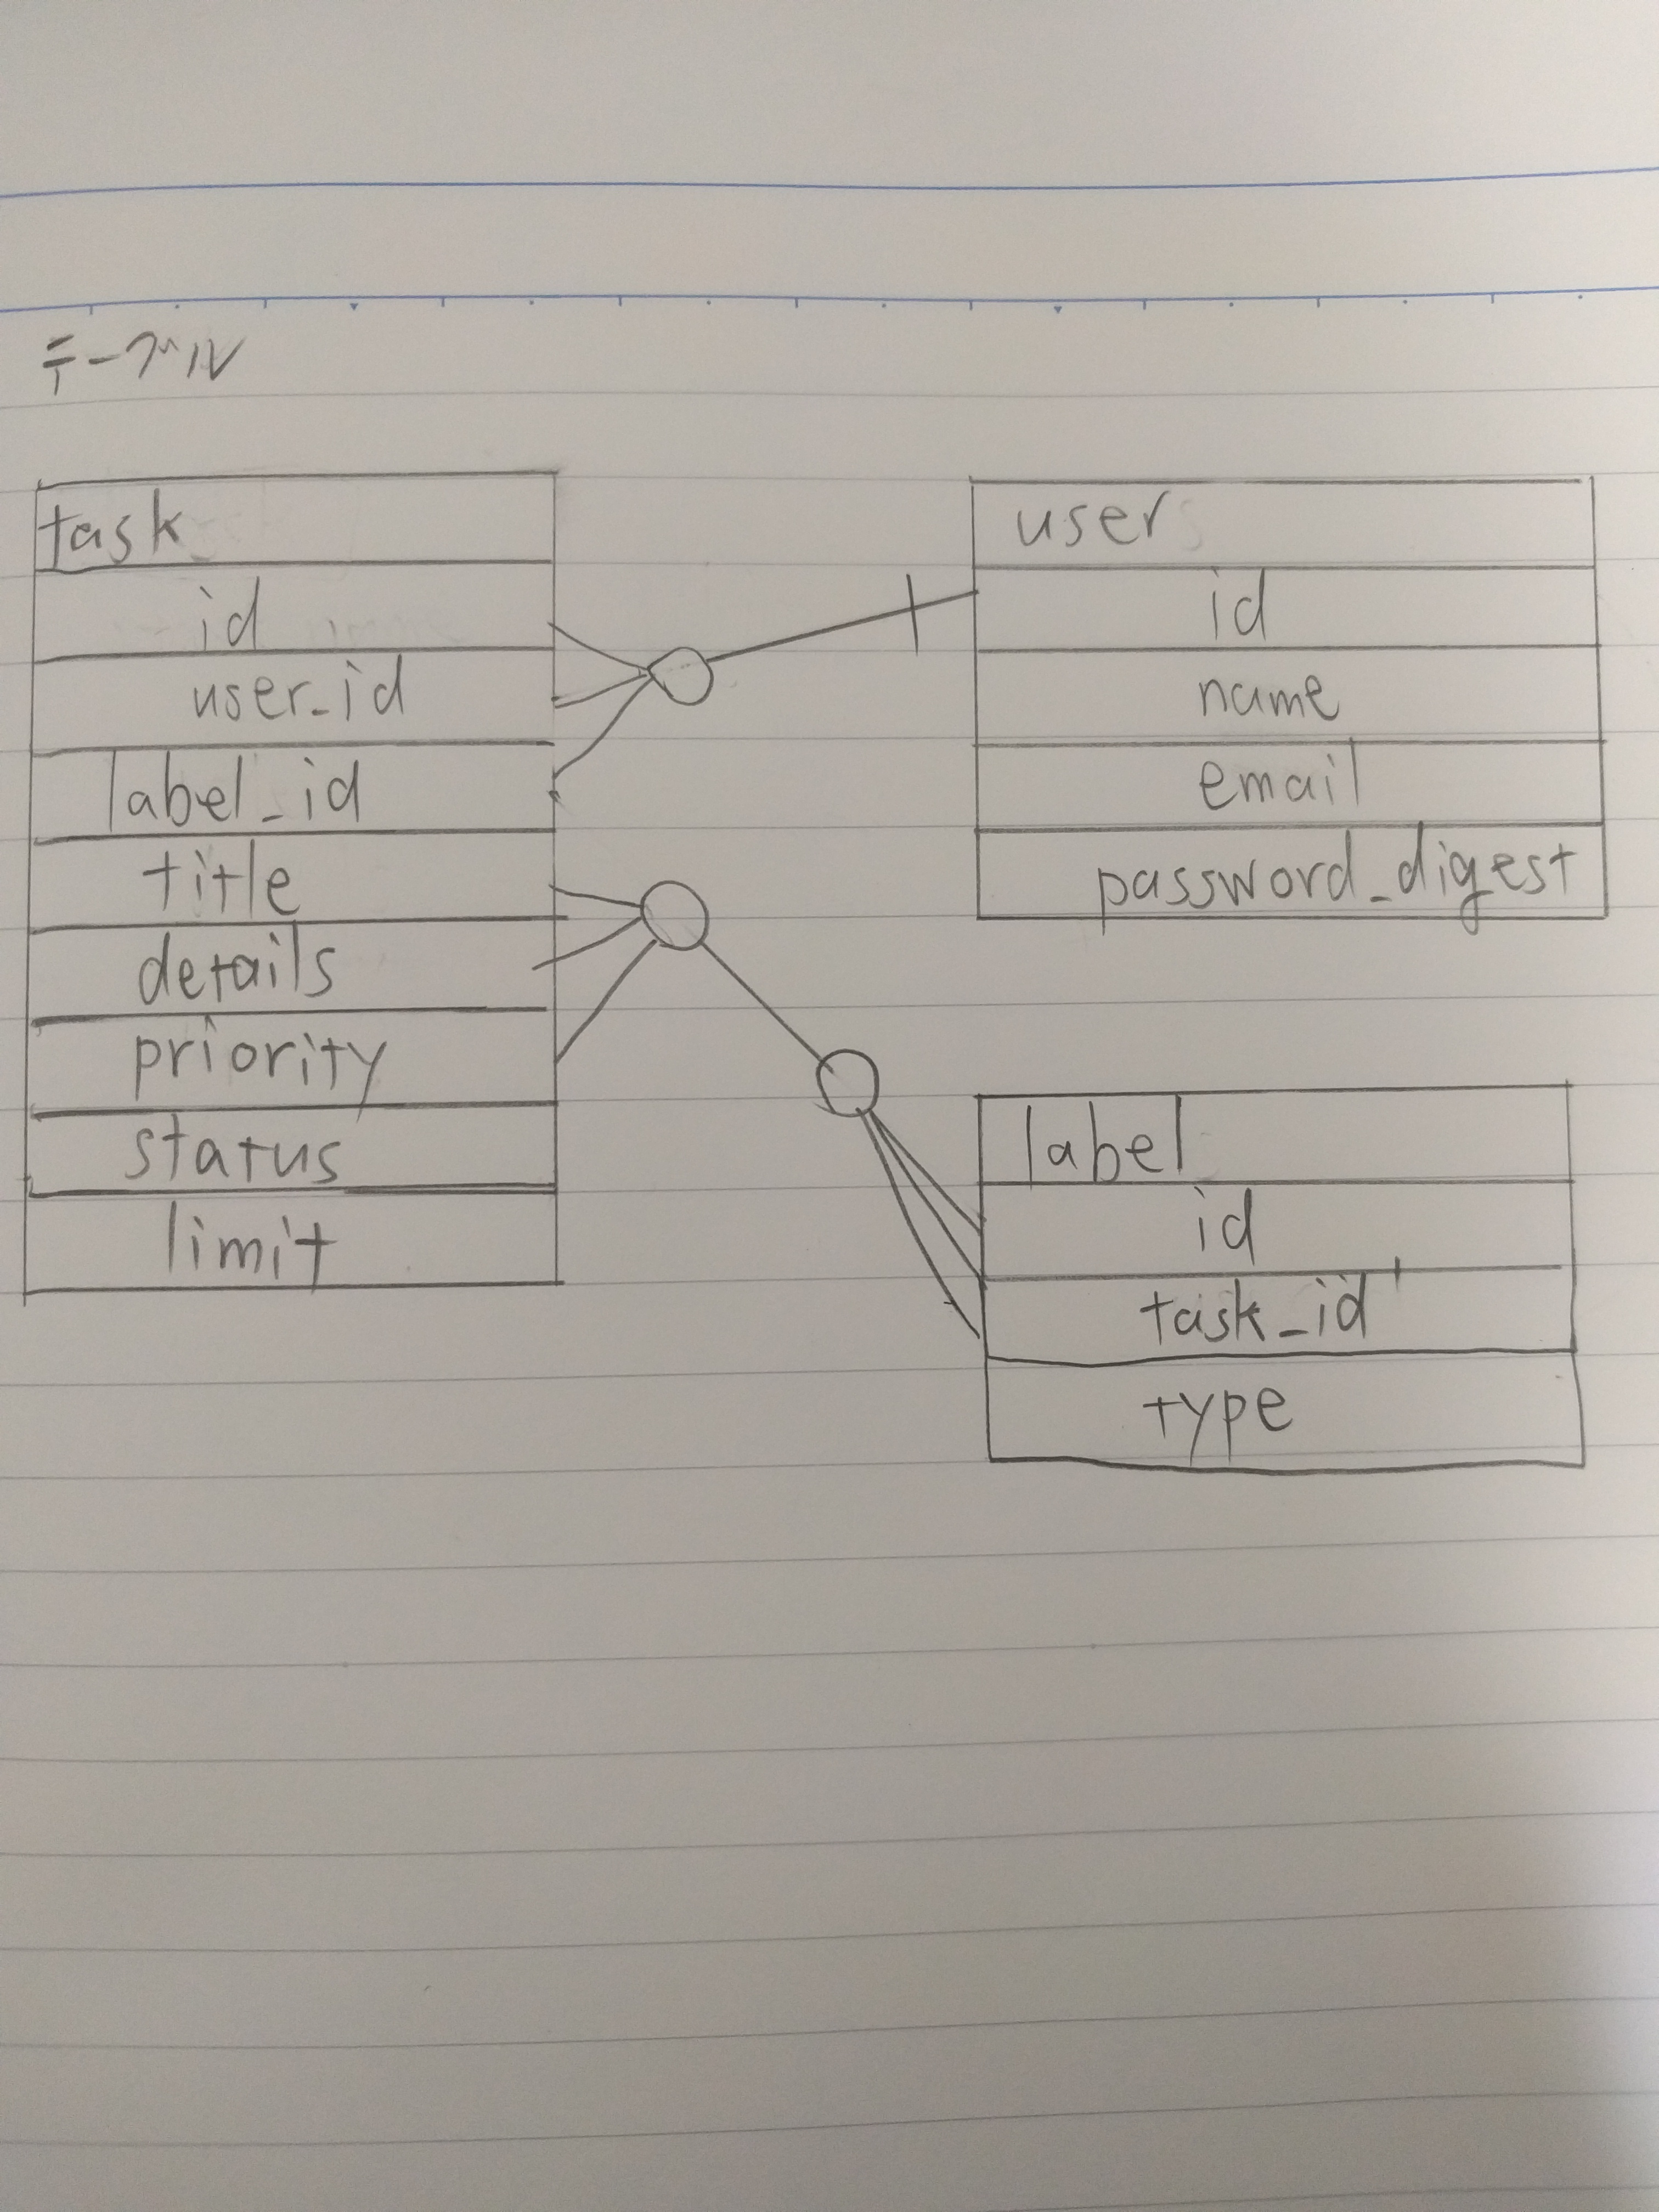 テーブル
task
id
user_id
label_id
title
details
priority
status
limit
user
id
name
email
password_digest
label
id
task_id
type